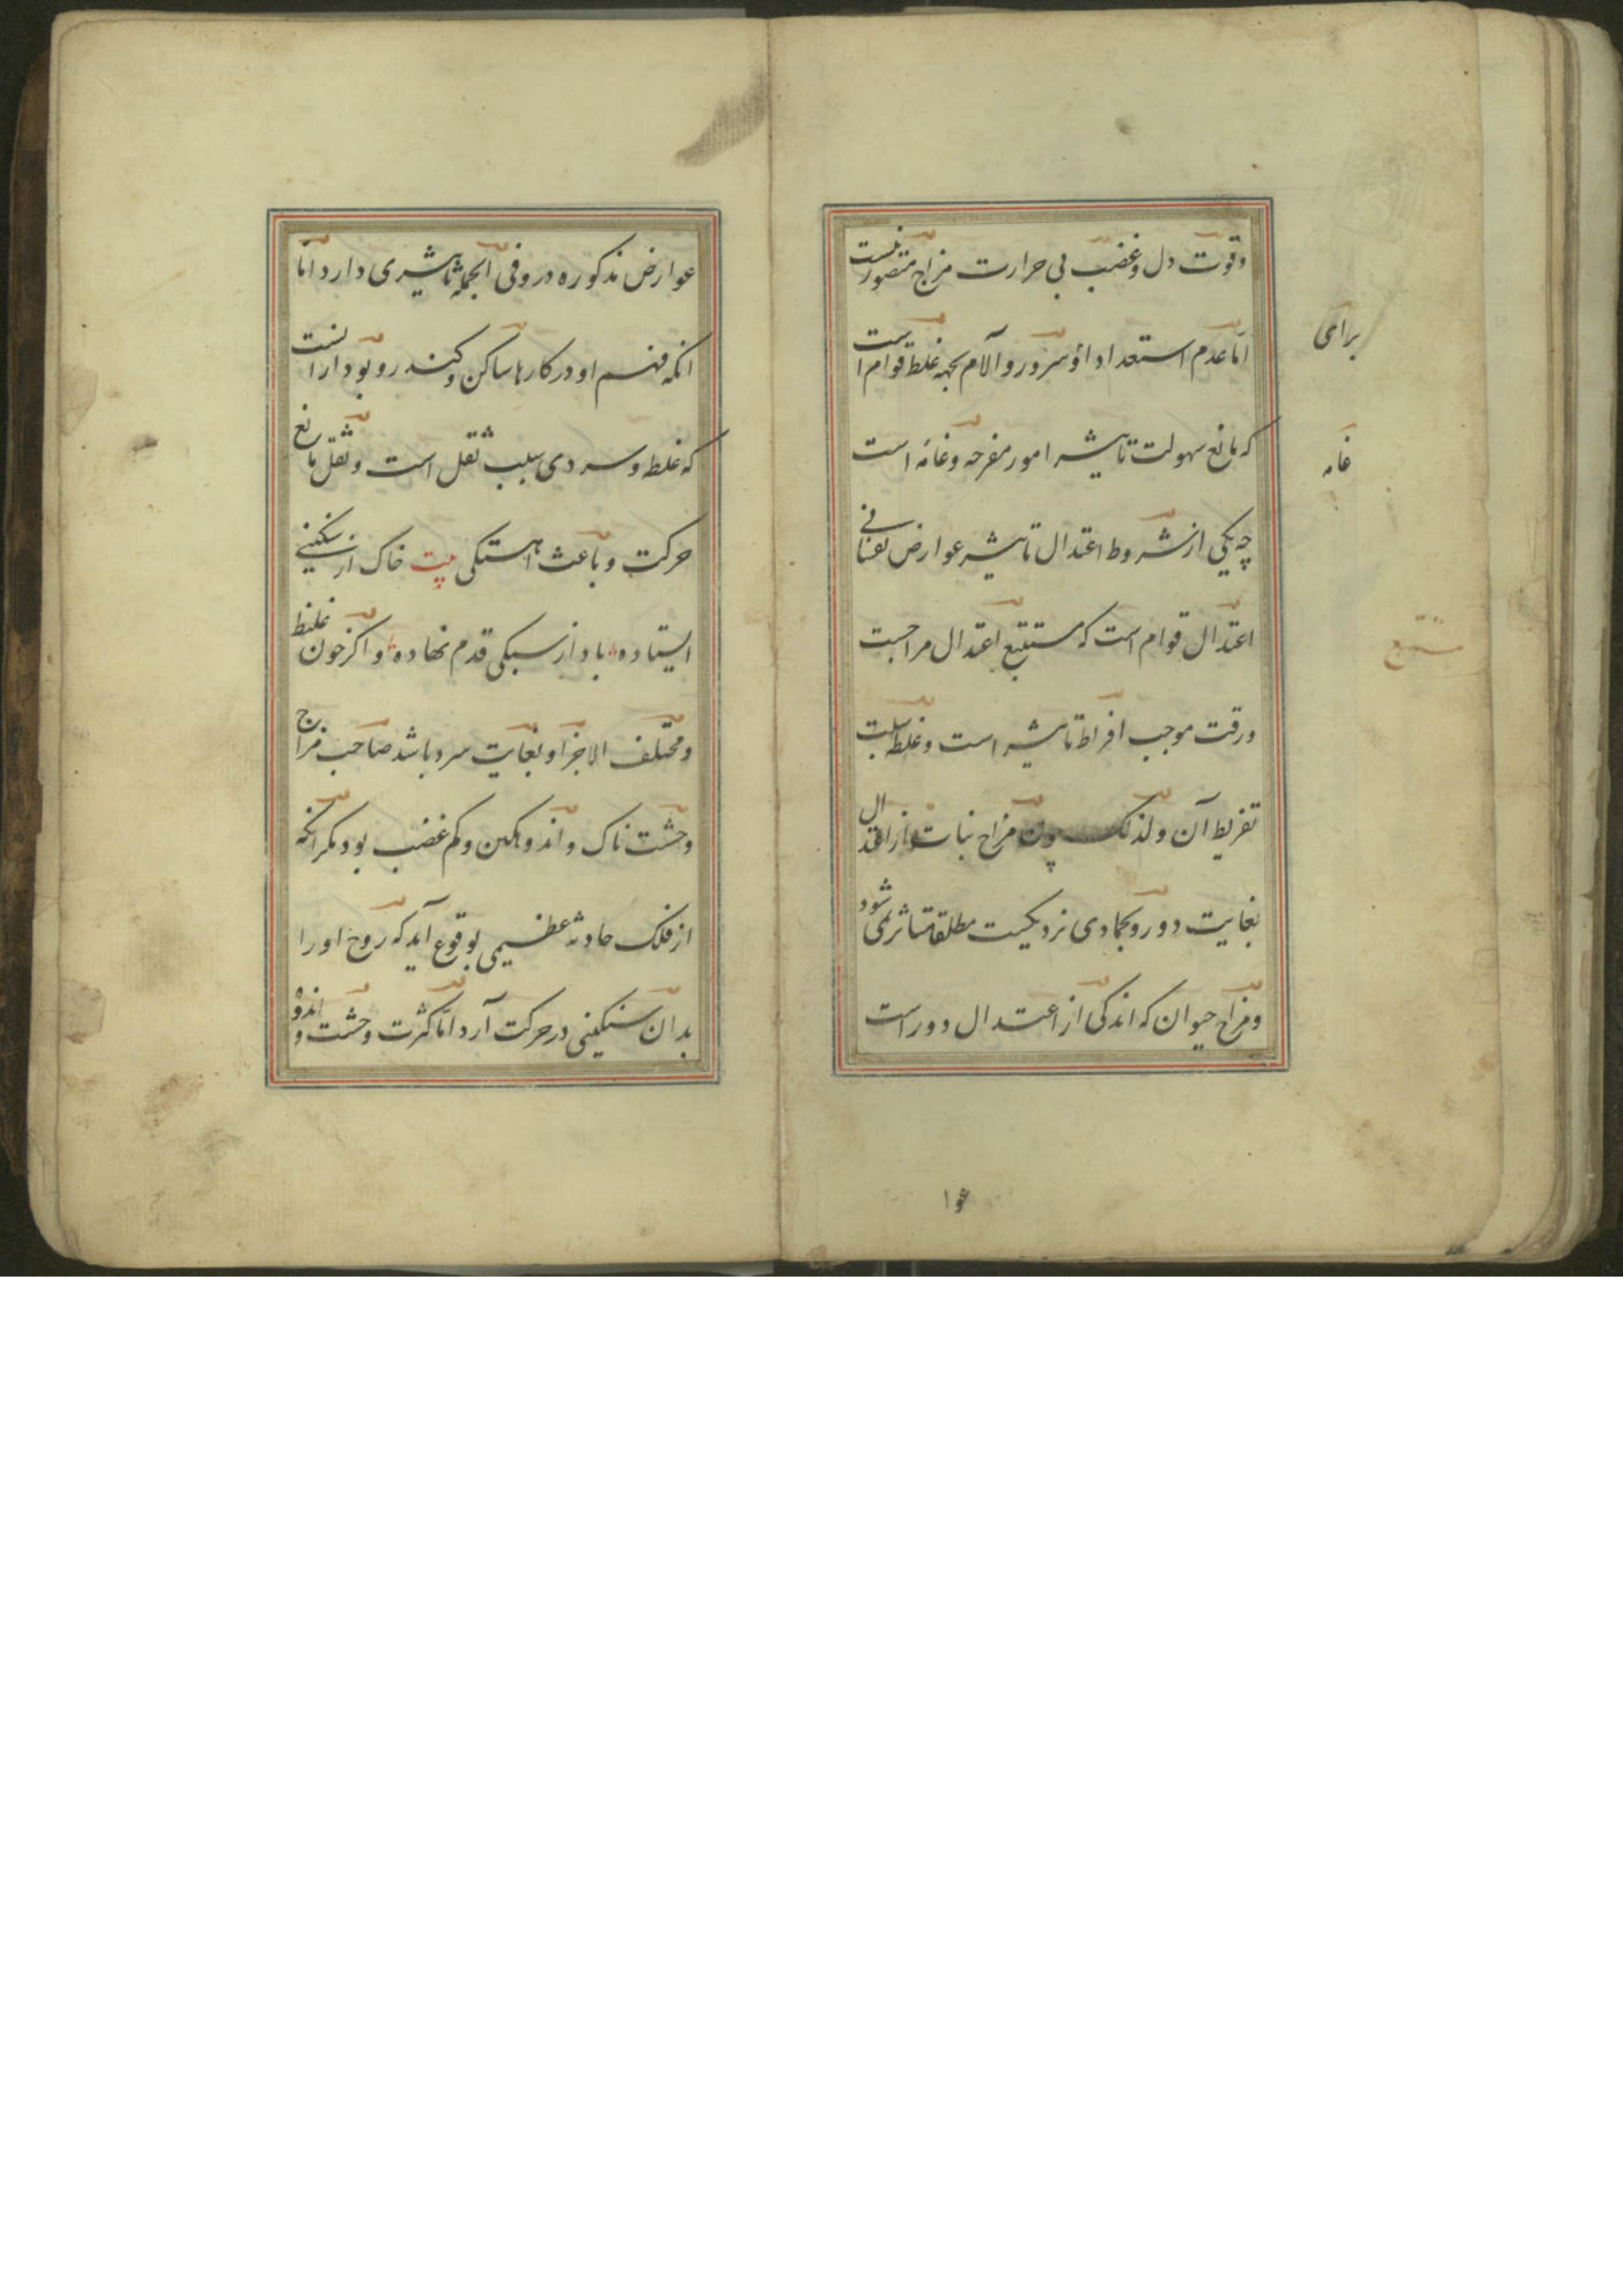 وقوت دل و غضب بی حرارت مزاج متصور نیست
اما عدم استعداد او سرور و آلام بجهه غلظ قوام است
که مانع سهولت تاثیر امور مفرحه و غامّه است
چه یکی از شروط اعتدال تاثیر عوارض نفسانی
اعتدال قوام است که مستتبع اعتدال مزاجست
ورقت موجب افراط تاثیر است و غلظ سبب
تفریط آن ولذلک چون مزاج نبات از اعتدال
بغایت دور و بجمادی نزدیکست مطلقا متاثر نمی شود
ومزاج حیوان که اندکی از اعتدال دور است
برای
غامه
مستتبع
عوارض مذکوره درو فی الجمله تاثیری دارد اما
انکه فهم او در کارها ساکن و کند رو بود از انست
که غلظ و سردی سبب ثقل است و ثقل مانع
حرکت و باعث اهستکی بیت خاک از سنکینی
ایستاده باد از سبکی قدم نهاده و اکر خون غلیظ
ومختلف الاجزا و بغایت سرد باشد صاحب مزاج
وحشت ناک و اندوهکین و کم غضب بود مکر انکه
از فلک حادثه عظیمی بوقوع آید که روح اورا
بدان سنکینی در حرکت آرد اما کثرت وحشت و اندوه